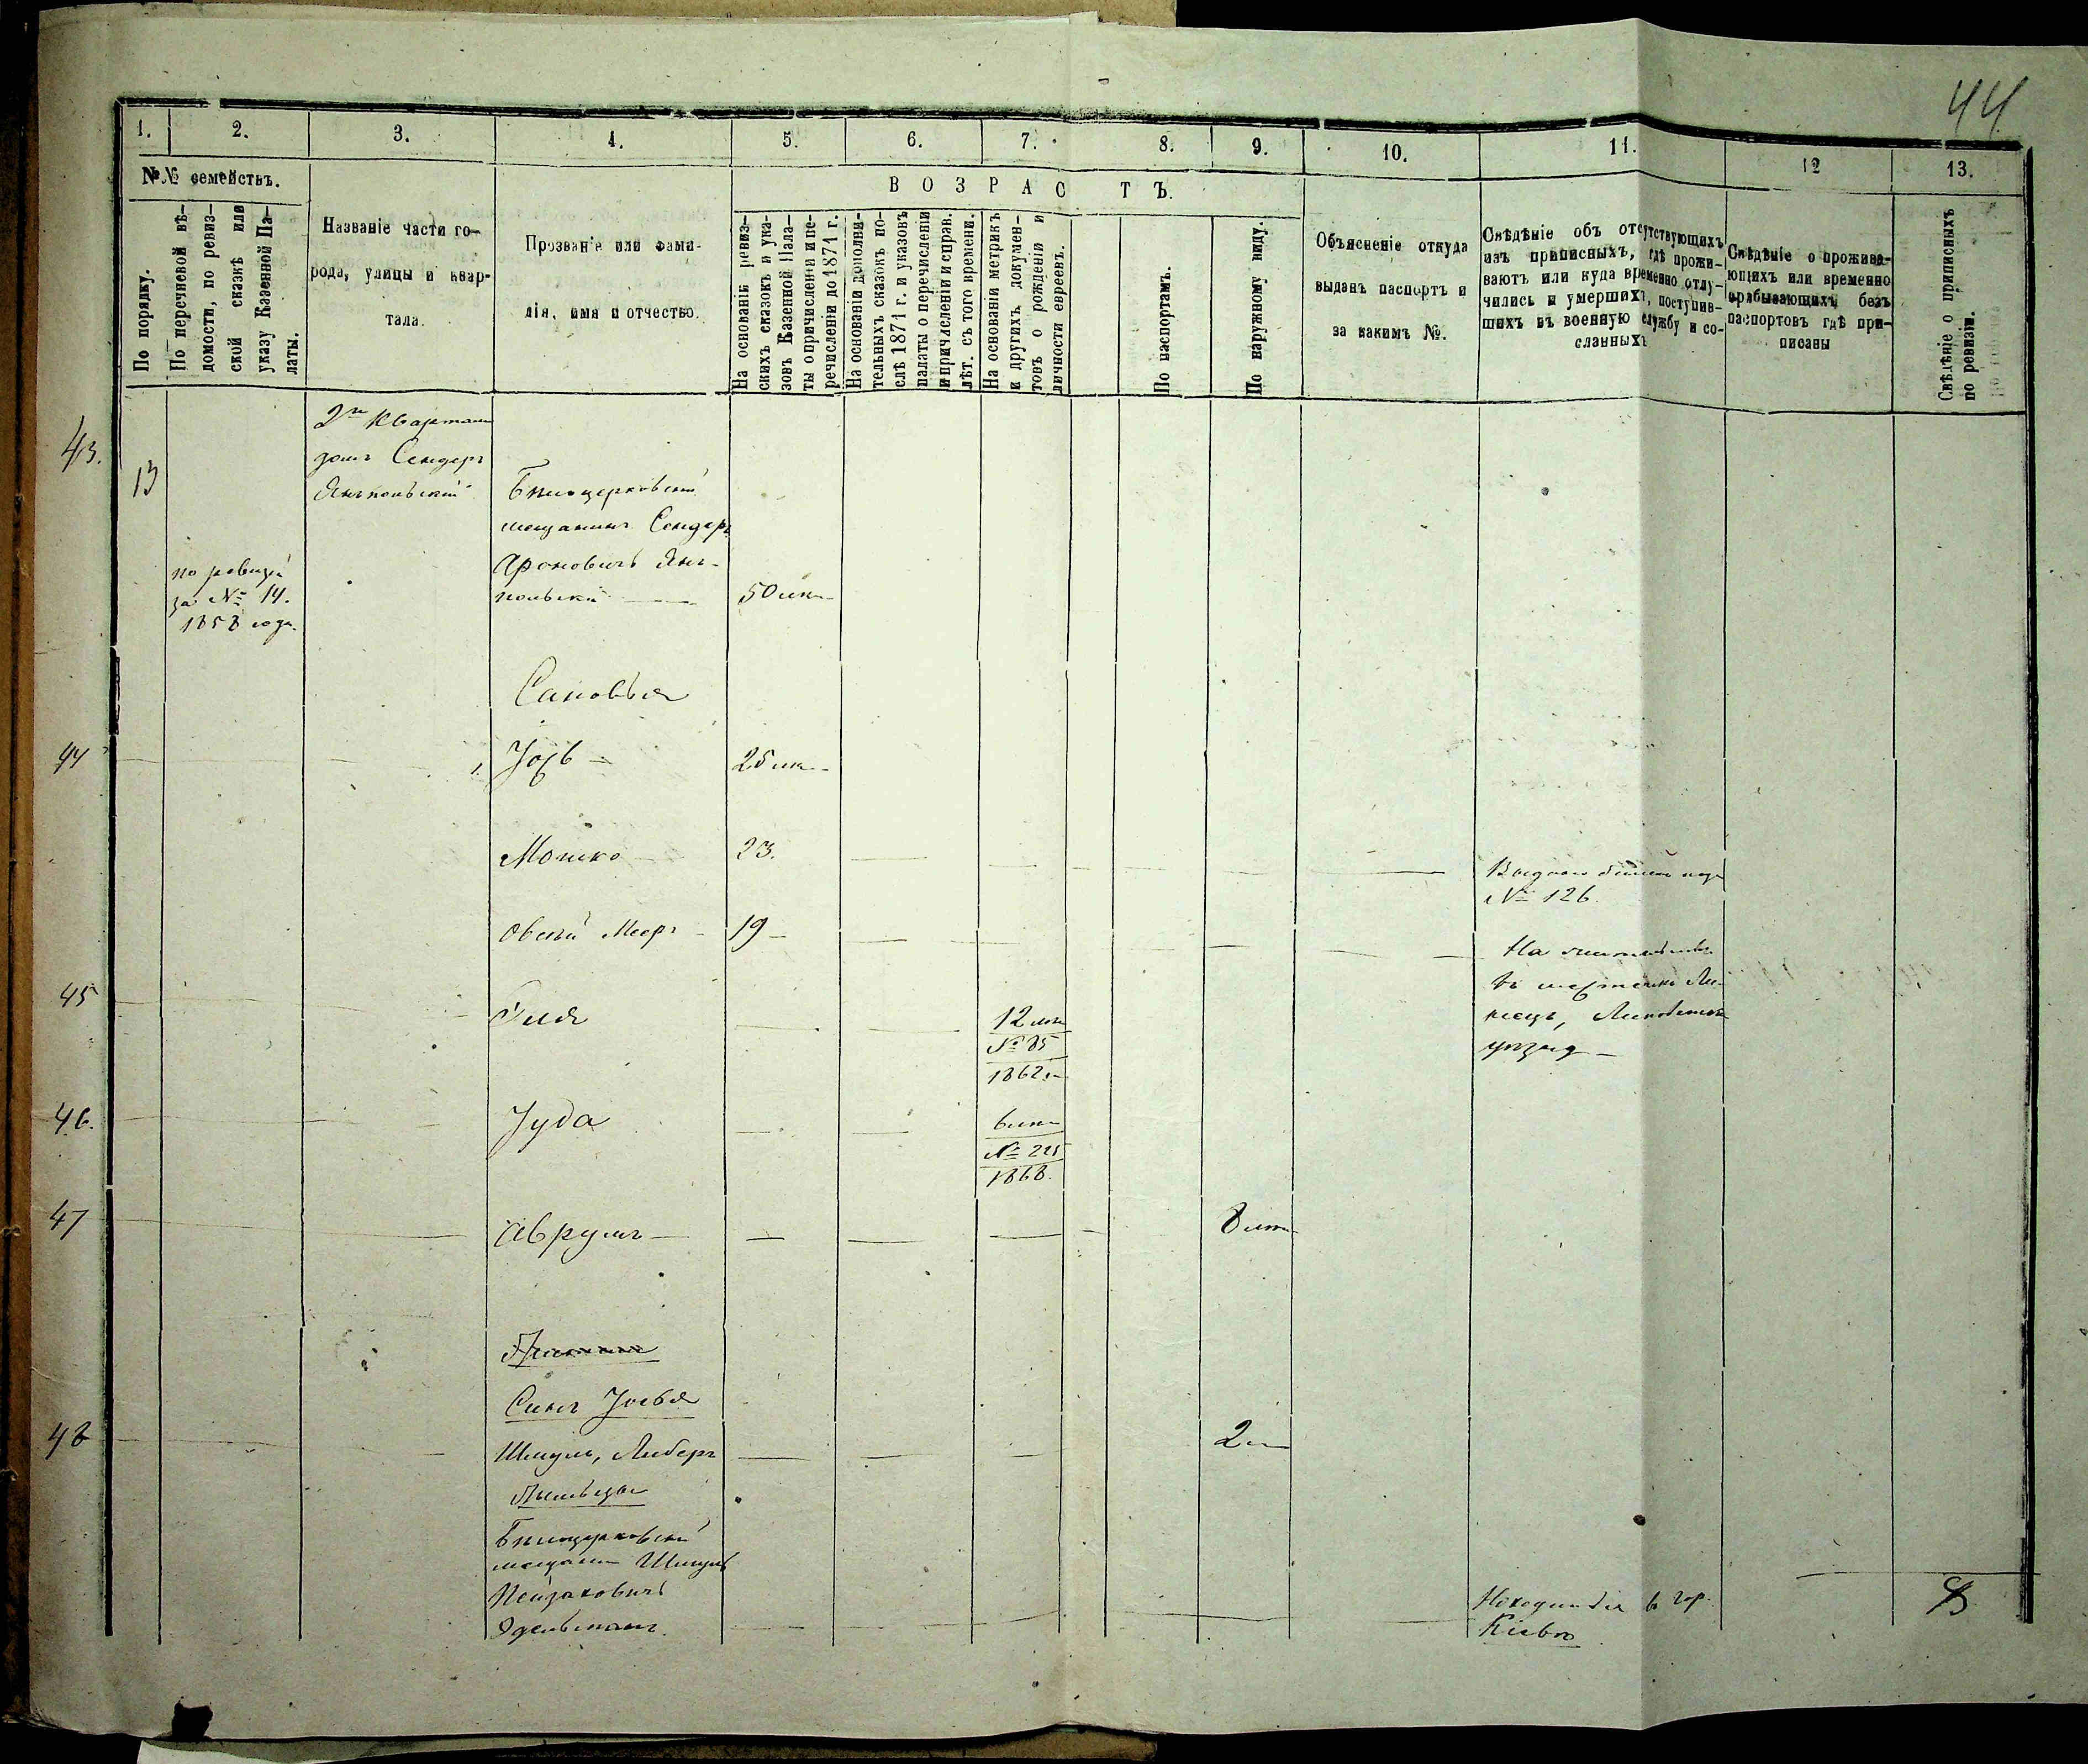 44
1. 2. 3. 4. 5. 6. 7. 8. 9. 10. 11. 12 13.
№№ семействъ.
По порядку.
По перечневой вѣ-
домости, по ревиз-
ской сказкѣ или
указу Казенной Па-
латы.
Названіе части го-
рода, улицы и квар-
тала.
Прозваніе или фами-
лія, имя и отчество.
ВОЗРАСТЪ.
На основаніи ревиз-
скихъ сказокъ и ука-
зовъ Казенной Пала-
ты о причисленіи и пе-
речисленіи до 1871 г.
На основаніи дополни-
тельныхъ сказокъ по-
слѣ 1871 г. и указовъ
палаты о перечисленіи
и причисленіи и справ.
лѣт. съ того времени.
На основаніи метрикъ
и другихъ докумен-
товъ о рожденіи и
личности евреевъ.
По паспортамъ.
По наружному виду.
Объясненіе откуда
выданъ паспортъ и
за какимъ №.
Свѣдѣніе объ отсутствующихъ
изъ приписныхъ, гдѣ прожи-
ваютъ или куда временно отлу-
чились и умершихъ, поступив-
шихъ въ военную службу и со-
сланныхъ
Свѣдѣніе о прожива-
ющихъ или временно
прибывающихъ безъ
паспортовъ гдѣ при-
писаны
Свѣдѣніе о приписныхъ
по ревизіи.
43.
13
по ревизіи
за № 14.
1858 года.
2й Кварталъ
домъ Сендеръ
Янпольскій
Бѣлоцерковскій
мещанинъ Сендеръ
Ароновичъ Ян-
польскій
50 лѣт
Сановья
44
1. Іось
25 лѣт
Мошко
23.
Выданъ билетъ подъ
№ 126.
Овсѣй Мееръ
19
На жительствѣ
въ местечкѣ Ли-
пецъ, Липовецкій
уѣздъ
45
Гиля
12 лѣт
№ 85
1862 г
46.
Іуда
6 лѣт
№ 225
1868.
47
Аврумъ
8 лѣт
Синъ Іосья
48
Шмуль, Либеръ
2
Бѣлоцерковскій
мещанинъ Шмуль
Пейзаховичъ
Эдельманъ.
Находится в гор.
Кіевѣ